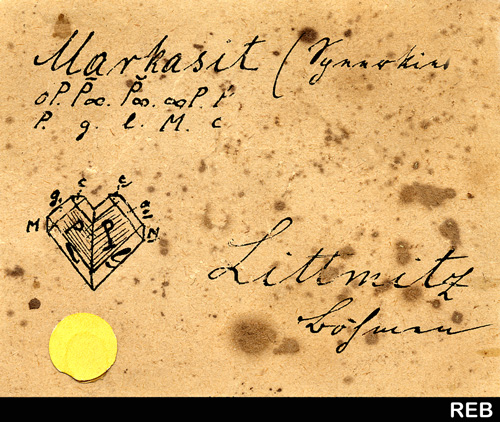 Markasit (Speerkies
oP. P̄∞. P̆∞. ∞P. P
P. g. l. M. c
g. c c
M M
P P
Littmitz
Böhmen
REB